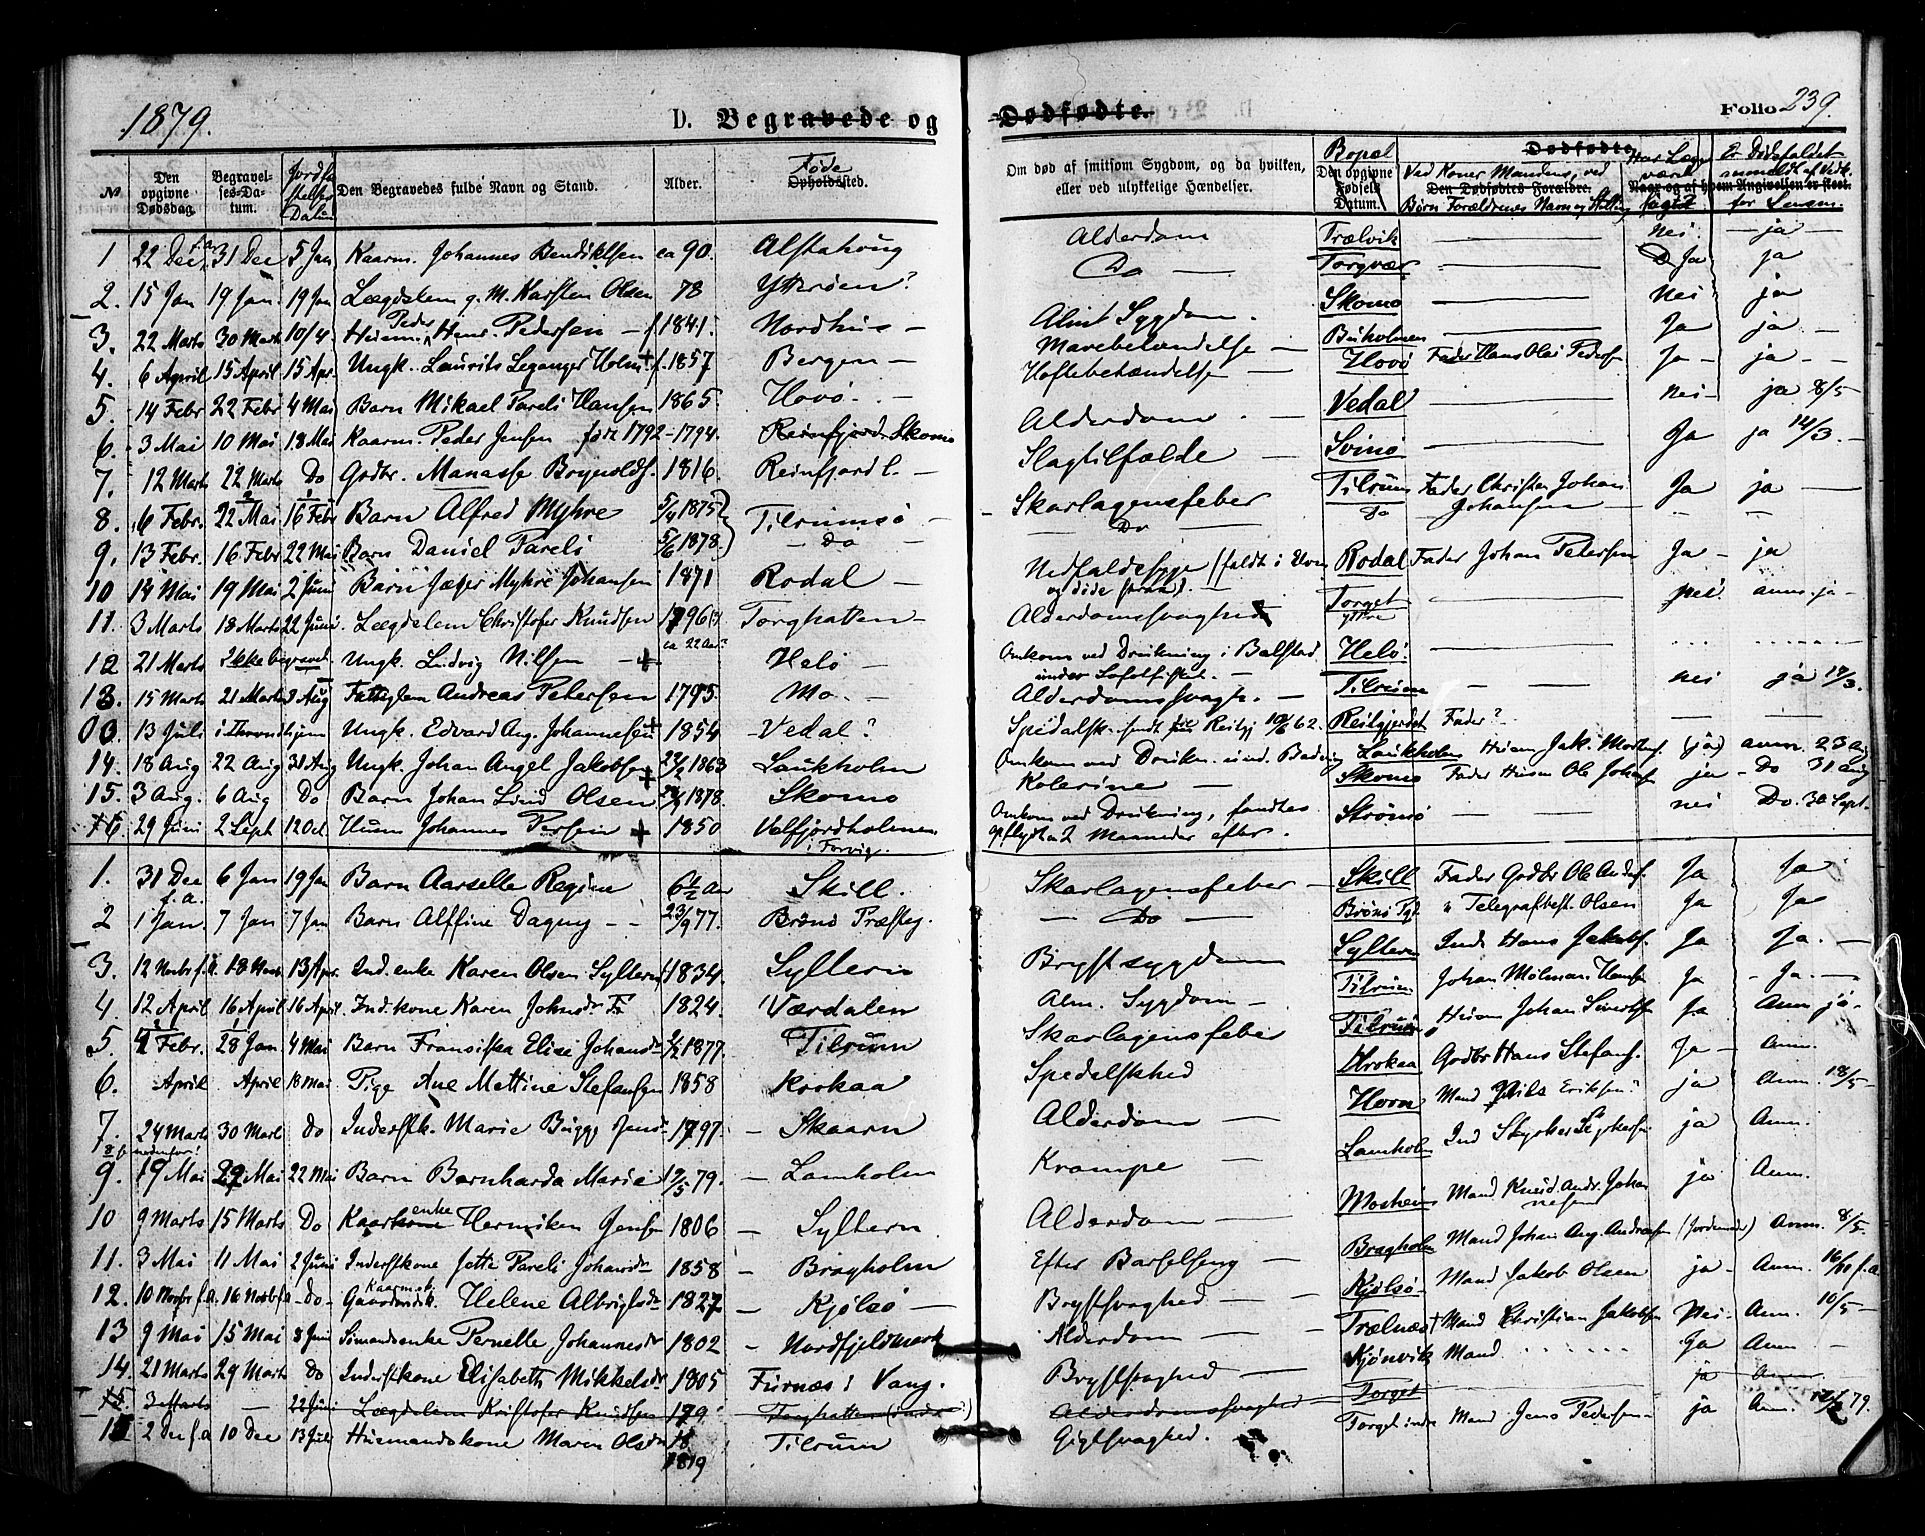 1879.
D. Begravede og
Dødfødte.
Folio 239.
№
Den opgivne Dødsdag.
Begravelses-Datum.
Jordfæstelses Datum
Den Begravedes fulde Navn og Stand.
Alder.
Føde Opholdssted.
Om død af smitsom Sygdom, og da hvilken, eller ved ulykkelige Hændelser.
Bopæl
Den opgivne Fødsels Datum.
Dødfødte.
Ved Koner Mandens, ved Børn Forældrenes Navn og Stilling
Den Dødfødtes Forældre.
Naar og af hvem Angivelsen er skeet.
Har Læge været søgt
Er Dødsfaldet anmeldt af Vedk. for Lensm.
1 22 Dec f.a. 31 Dec 5 Jan Kaarm. Johannes Bendiktsen ca 90. Alstahoug Alderdom Trælvik — nei. — ja —
2. 15 Jan 19 Jan 19 Jan Lægdslem g. M. Karsten Olsen 78 Yttrøen? Do — Torgvær — Ja ja
3. 22 Marts 30 Marts 10/4 Husm. Peder Henr. Pedersen — f. 1841. Nordhus — Almt Sygdom. Skomo — nei ja
4. 6 April 15 April 15 Apr. Ungk. Laurits Leganger Holm + f. 1857 Bergen — Mavebetændelse — Buholmen — Ja ja —
5. 14 Febr 22 Febr 4 Mai Barn Mikael Pareli Hansen 1865 Hovø. — Hoftebetændelse — Hovø Fader Hans Olai Peders. Ja — ja —
6. 3 Mai 10 Mai 18 Mai Kaarm. Peder Jensen født 1792-1794. Reinfjord. Skomo Alderdom. — Vedal — nei — ja 8/5
7. 12 Marts 22 Marts Do Gaardbr. Manasse Brynolds. 1816. Reinfjord. — Slagtilfælde — Svinø — Ja ja 14/3. —
8. 6 Febr. 22 Mai 16 Febr Barn Alfred Myhre 5/4 1875 Tilrumsø — Skarlagensfeber Tilrum Fader Christen Johan Johansen Ja ja —
9. 13 Febr. 16 Febr 22 Mai Barn Daniel Pareli 5/6 1878. — Do — — Do — Do
10 14 Mai 19 Mai 2 Juni Barn Jæger Myhre Johansen 1871 Rodal — Nedfaldssyge (faldt i Elven og døde strax). — Rodal Fader Johan Petersen Ja — ja
11. 3 Marts 18 Marts 22 Juni. Lægdslem Christofer Knudsen 1796 Torghatten — Alderdomssvaghed Torget yttre — nei anm. ja —
12 21 Marts ikke begravet Ungk. Ludvig Nilsen — + ca 22 Aar? Helø — Omkom ved Drukning i Balstad under Lofotfisket. — Helø. —
13. 15 Marts 21 Marts 3 Aug Fattiglem Andreas Petersen 1795. Mo. — Alderdomssvagh. — Tilrum — nei ja 17/3.
00. 13 Juli i Throndhjem Ungk. Edvard Aug. Johannesen + 1854 Vedal? Spedalsk. sendt fra Reitgj 10/6 62. Reitgjerdet Fader? — —
14. 18 Aug 22 Aug 31 Aug Ungk. Johan Angel Jakobsen + 22/2 1863 Laukholm Omkom ved Drukn. und. Badning Laukholm Husm Jak. Mortens. (ja) anm. 23 Aug
15. 3 Aug. 6 Aug Do Barn Johan Lind Olsen 1878. Skomo Kolerine. — Skomo Fader Husm Ole Johans. ja — Do 31 Aug
16 29 Juni 2 Sept 12 Oct. Husm Johannes Persen + 1850 Velfjordholmen i Torvig. Omkom ved Drukning, fandtes opflydt 2 Maaneder efter. Strømsø — nei Do. 30 Sept.
1. 31 Dec f.a. 6 Jan 19 Jan Barn Aarselle Regine 6½ Aar Skill. Skarlagensfeber — Skill Fader Gaardbr Ole Anders. Ja Ja
2 1 Jan 7 Jan 7 Jan Barn Alffine Dagny — 23/9 77. Brønø Præsteg. — Do — Brønø Pgd " Telegrafbest. Olsen Ja Ja
3. 12 Novbr f.A. 18 Novb. 13 Apr. Ind. enke Karen Olsen Syltern f. 1834. Syltern Brystsygdom Syltern Ind. Hans Jakobs. Ja Ja. —
4. 12 April 16 April 16 April. Ind. kone Karen Johnsdr. 1824. Værdalen Alm. Sygdom — Tilrum Johan Molman Hans. Ja — Ja. —
5. Febr. 28 Jan 4 Mai Barn Fransiska Elise Johansdr 1877. Tilrum Skarlagensfeber Tilrum Husm Johan Sivertsen Ja Anm ja —
6. April April 18 Mai Pige Ane Mettine Stefansen 1858 Krokaa Spedalskhed Krokaa Gaardbr Hans Stefans. Ja — Anm.
7. 24 Marts 30 Marts Do Inderstk. Marie Bugge Jens. 1797. — Skaarn Alderdom — Horn Mand Nils Eriksen? ja Anm. 18/5 —
8 nedenfor!
9. 19 Mai 29 Mai 22 Mai Barn Bernharda Marie 12/5 79. — Lamholm Krampe — Lamholm Ind Styrker Styrkersen ja Anm.
10 9 Marts 15 Marts Do Kaarenke Henriken Jensen 1806 — Syltern Alderdom — Mosheim Mand Knud Andr. Johannesen ja Anm.
11. 3 Mai 11 Mai 2 Juni Inderstkone Jette Pareli Johansdr 1858 — Bragholm Efter Barselseng — Bragholm Mand Johan Aug. Andreasen (Jordemoder) Anm. 8/5.
12. 10 Novbr f.a. 16 Novb f.a. Do — Kaarmsk. Helene Albrigtsdr 1827 — Kjølsø — Brystsvaghed — Kjølsø. Mand Jakob Olsen ja — Anm. 16/11 f.a.
13 9 Mai 15 Mai 8 Juni Simandsenke Pernelle Johannesdr 1802 — Nordfjeldmark Alderdom — Trælnæs † Mand Christian Jakobsen Nei. Anm. 10/5 —
14. 21 Marts 29 Marts Do Inderstkone Elisabeth Mikkelsdr 1805 Furnæs i Vang. Brystsvaghed — Kjønvik Mand . . . . . . Ja Anm. —
15. 3 Marts — 22 Juni Lægdslem Kristofer Knudsen 179 Torghatten Alderdomssvaghed Torget — ja Anm.
15 2 Dec f.a 10 Dec 13 Juli Husmandskone Maren Olsdr 18 1819 Tilrum Gigtsvaghed. — Torget indre Mand Jens Pedersen — ja Anm. 79.